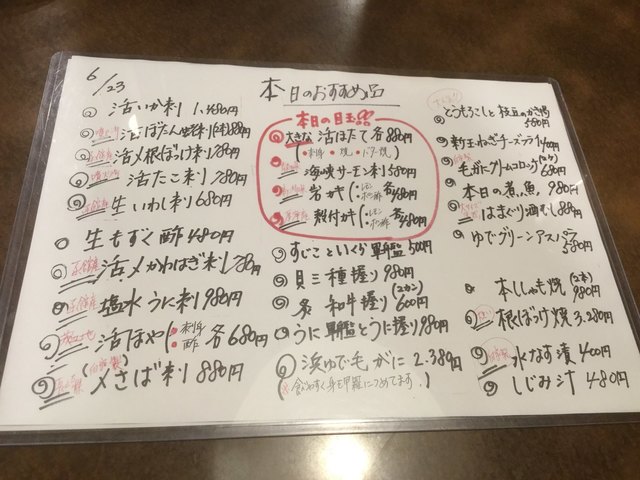 6/23
本日のおすすめ品
活いか刺 1,480円
活ぼたん蛯刺
活〆根ぼっけ刺 780円
活たこ刺 780円
生いわし刺 680円
生もずく酢 480円
活〆かわはぎ刺
塩水うに刺 980円
活ほや(・刺・酢 各680円
〆さば刺 880円
本日の目玉
大きな 活ほたて 各880円
(・刺・焼・バター焼)
海峡サーモン刺 580円
岩ガキ(・レモン・ポン酢 各480円
殻付ガキ(・レモン・ポン酢 各480円
すじこといくら軍艦 500円
貝三種握り 980円
炙 和牛握り(2カン) 600円
うに軍艦とうに握り 980円
浜ゆで毛がに 2,389円
(※食べやすく身を甲羅につめてます。)
とうもろこしと枝豆のかき揚 580円
新玉ねぎチーズフライ 400円
毛がにクリームコロッケ(2ケ) 680円
本日の煮魚 980円
はまぐり酒蒸し 880円
ゆでグリーンアスパラ 580円
本ししゃも焼(2本) 980円
根ぼっけ焼 3,280円
水なす漬 400円
しじみ汁 480円